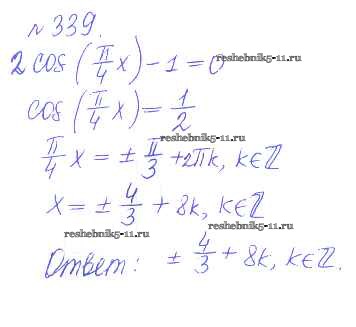 № 339.
2 cos (π/4 x) - 1 = 0
reshebnik5-11.ru
cos (π/4 x) = 1/2
reshebnik5-11.ru
π/4 x = ± π/3 + 2πk, k∈ℤ
x = ± 4/3 + 8k, k∈ℤ
reshebnik5-11.ru
reshebnik5-11.ru
Ответ: ± 4/3 + 8k, k∈ℤ.